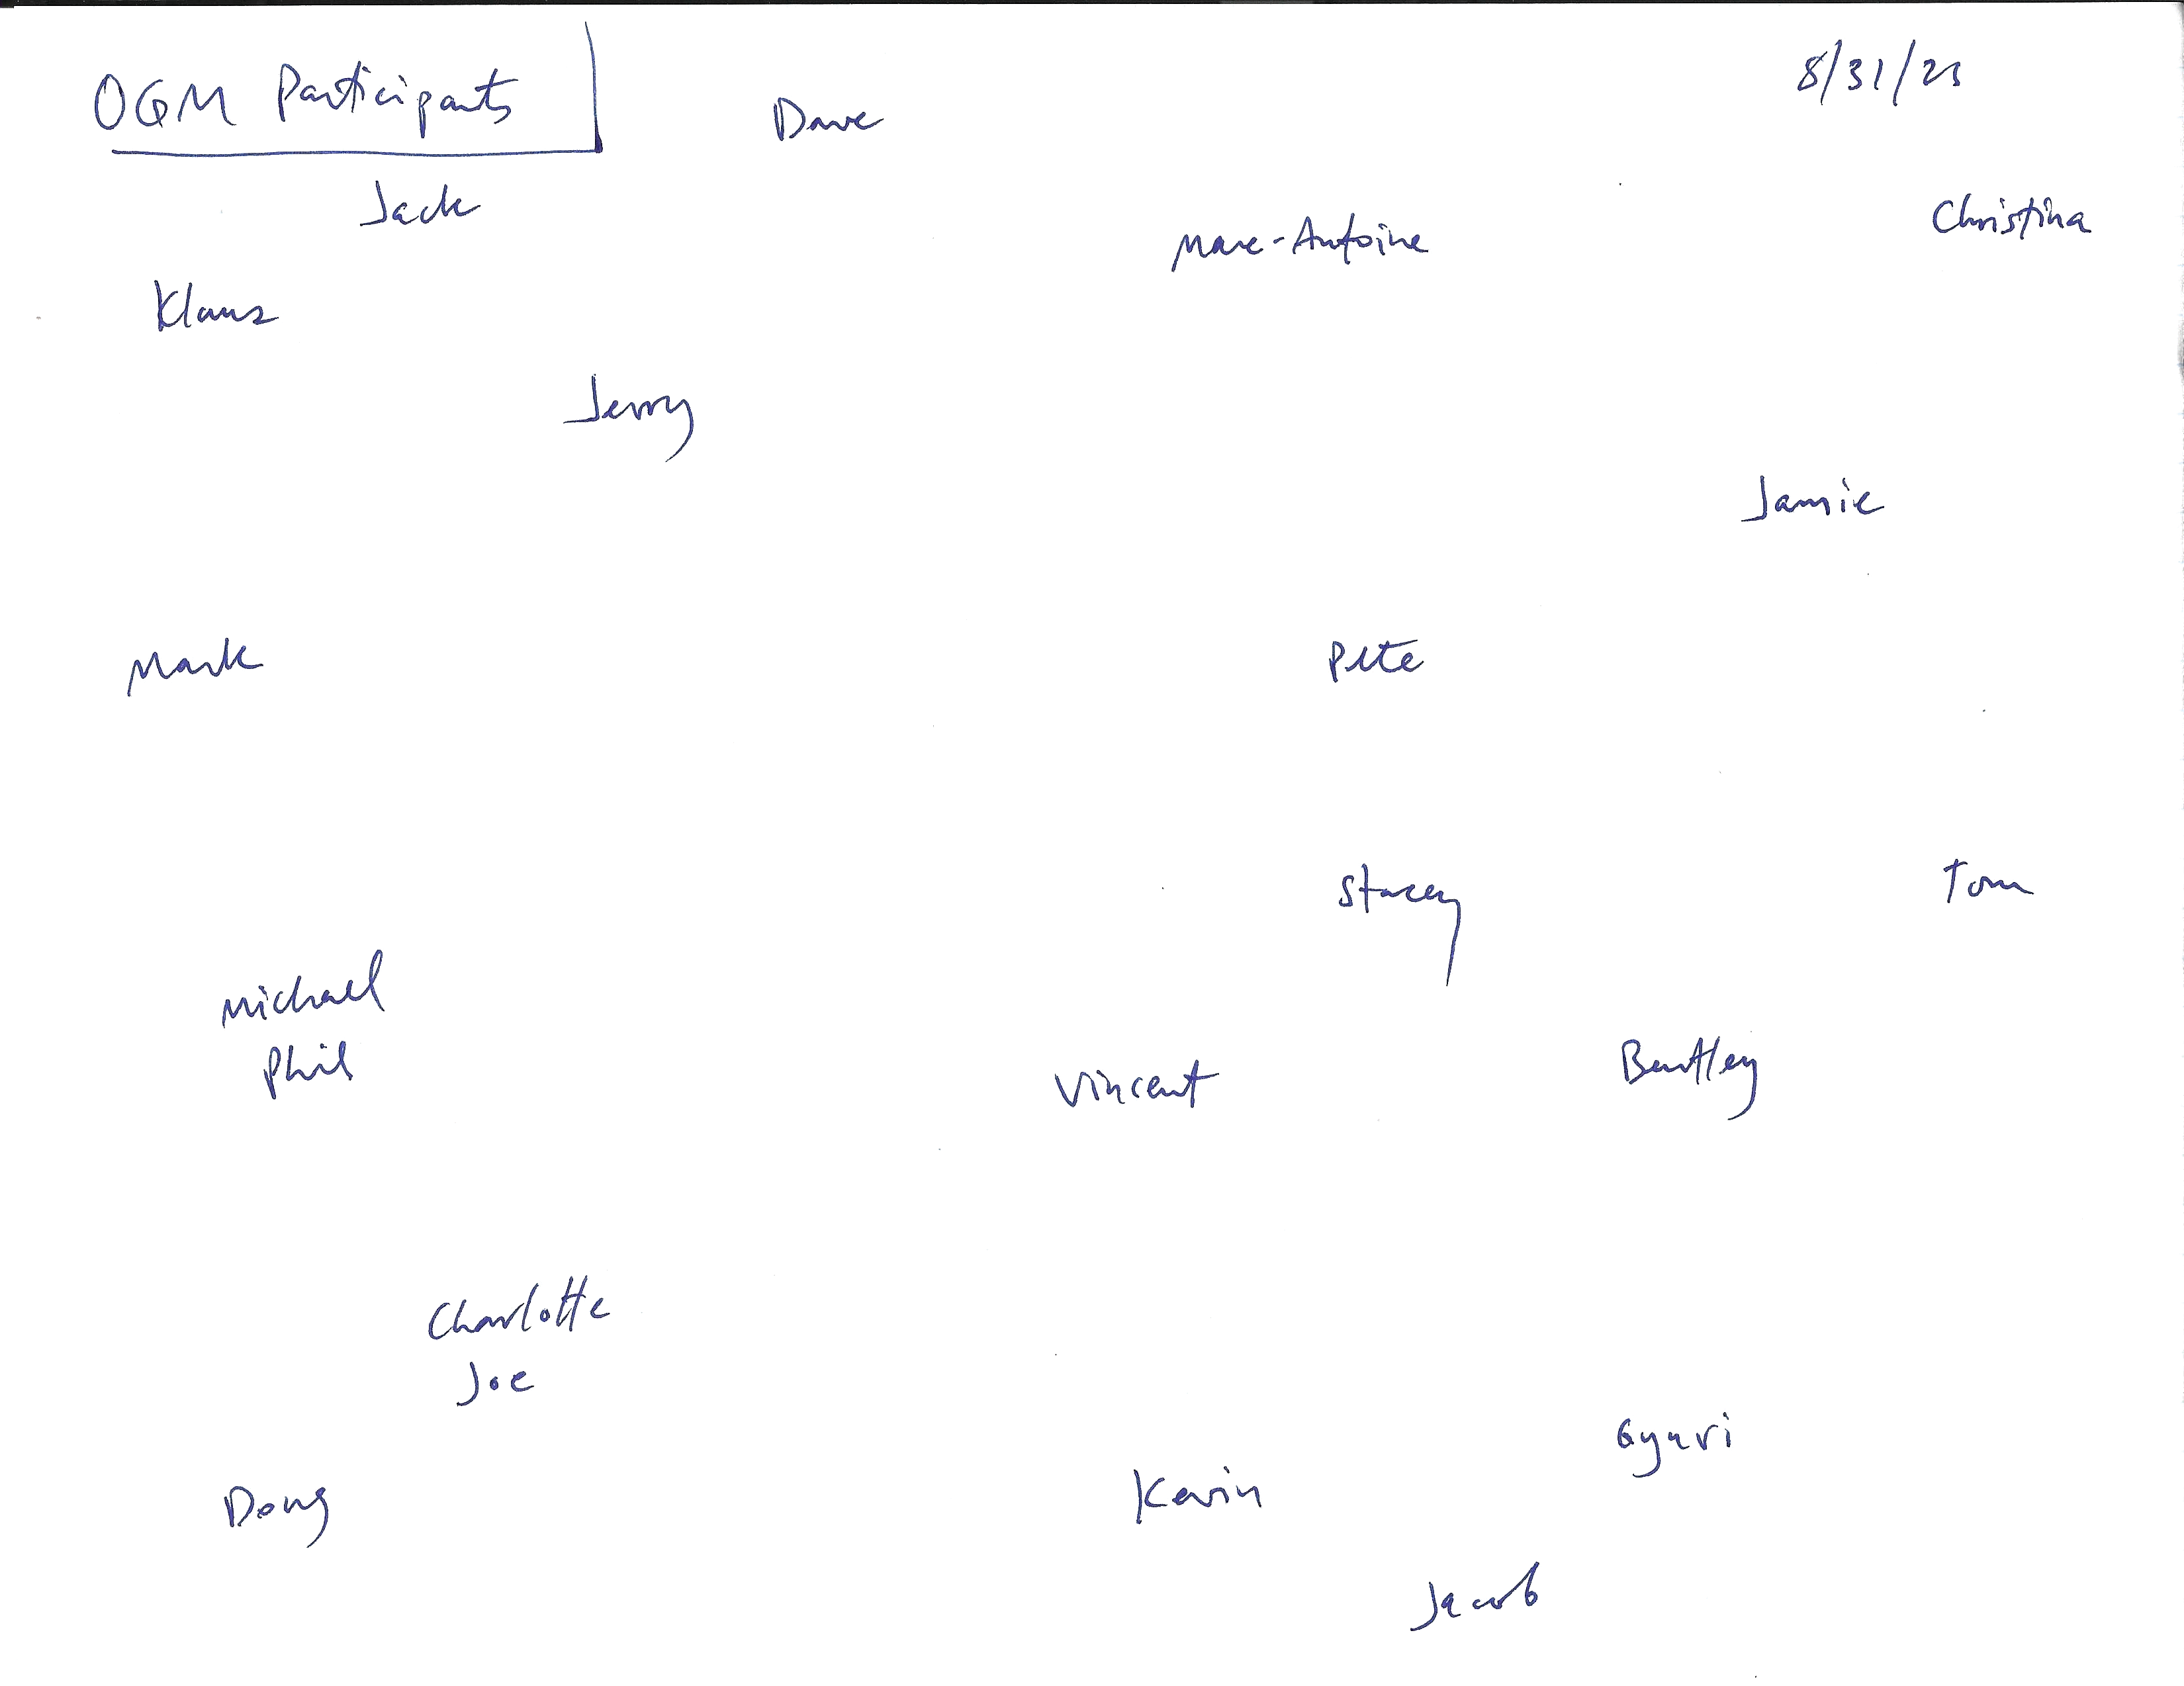 OGM Participants
8/31/23
Dave
Jack
Marc-Antoine
Christina
Klaus
Jerry
Jamie
Mark
Pete
Stacey
Tom
Michael
Phil
Vincent
Bentley
Charlotte
Joe
Gyuri
Doug
Kevin
Jacob